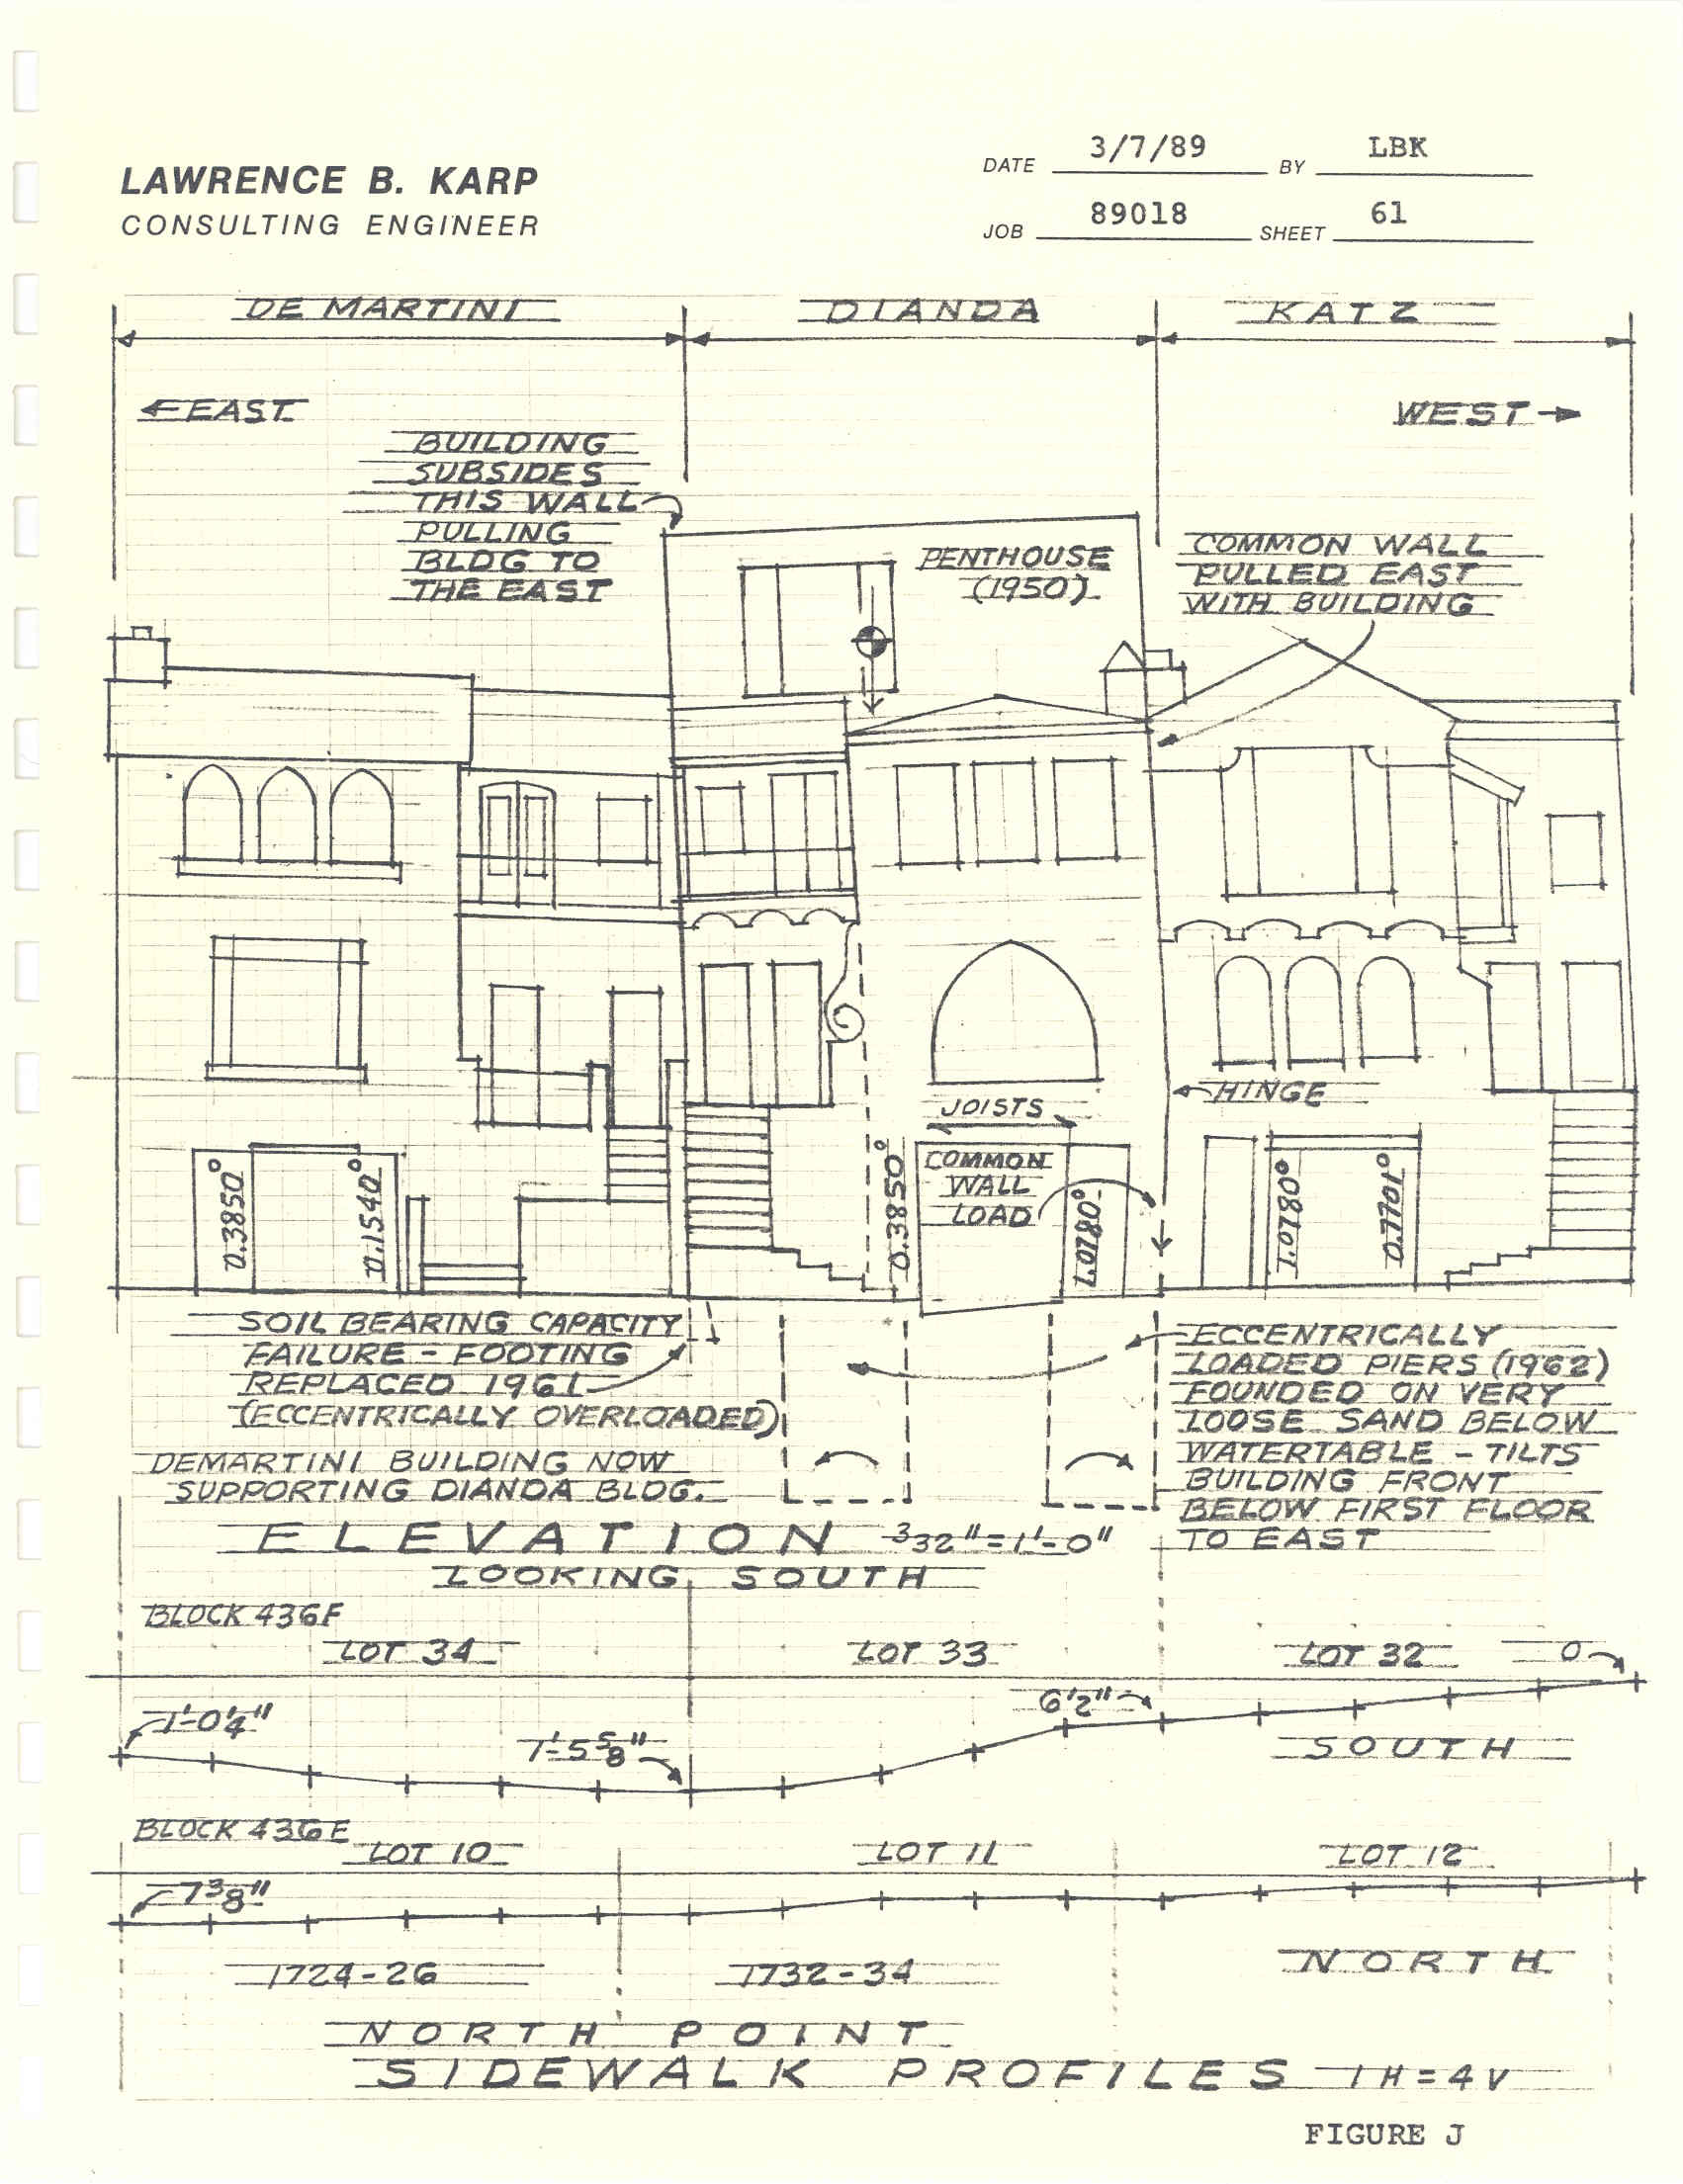 LAWRENCE B. KARP
CONSULTING ENGINEER
DATE 3/7/89 BY LBK
JOB 89018 SHEET 61
DE MARTINI
DIANDA
KATZ
EAST
WEST
BUILDING
SUBSIDES
THIS WALL
PULLING
BLDG TO
THE EAST
PENTHOUSE
(1950)
COMMON WALL
PULLED EAST
WITH BUILDING
HINGE
JOISTS
COMMON
WALL
LOAD
0.3850°
0.1540°
0.3850°
1.0780°
1.0780°
0.7701°
SOIL BEARING CAPACITY
FAILURE - FOOTING
REPLACED 1961
(ECCENTRICALLY OVERLOADED)
DEMARTINI BUILDING NOW
SUPPORTING DIANDA BLDG.
ECCENTRICALLY
LOADED PIERS (1962)
FOUNDED ON VERY
LOOSE SAND BELOW
WATERTABLE - TILTS
BUILDING FRONT
BELOW FIRST FLOOR
TO EAST
ELEVATION 3/32" = 1'-0"
LOOKING SOUTH
BLOCK 436F
LOT 34
LOT 33
LOT 32
0
1'-0¼"
1'-5⅝"
6½"
SOUTH
BLOCK 436E
LOT 10
LOT 11
LOT 12
7⅜"
1724-26
1732-34
NORTH
NORTH POINT
SIDEWALK PROFILES 1H=4V
FIGURE J